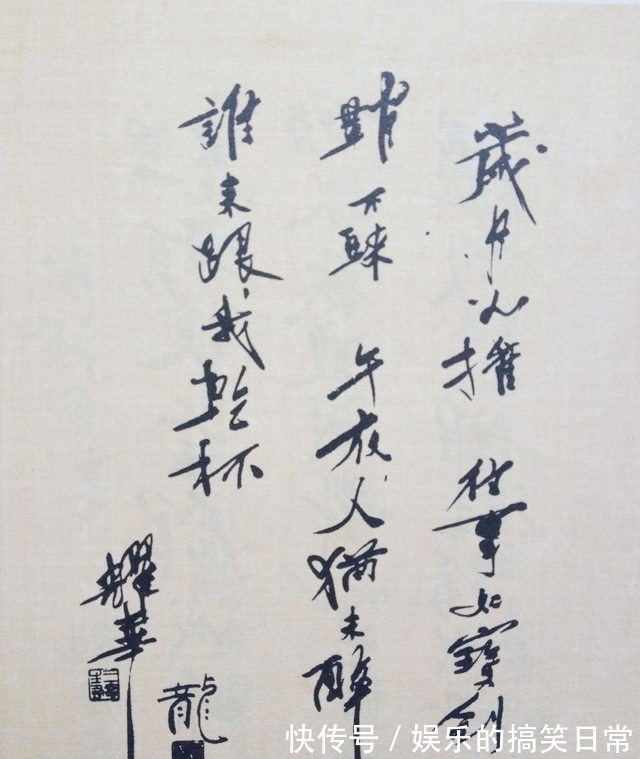 歲月 往事如寶劍
不 午夜人猶未醉
誰來跟我乾杯
耀華
龍
快传号/娱乐的搞笑日常